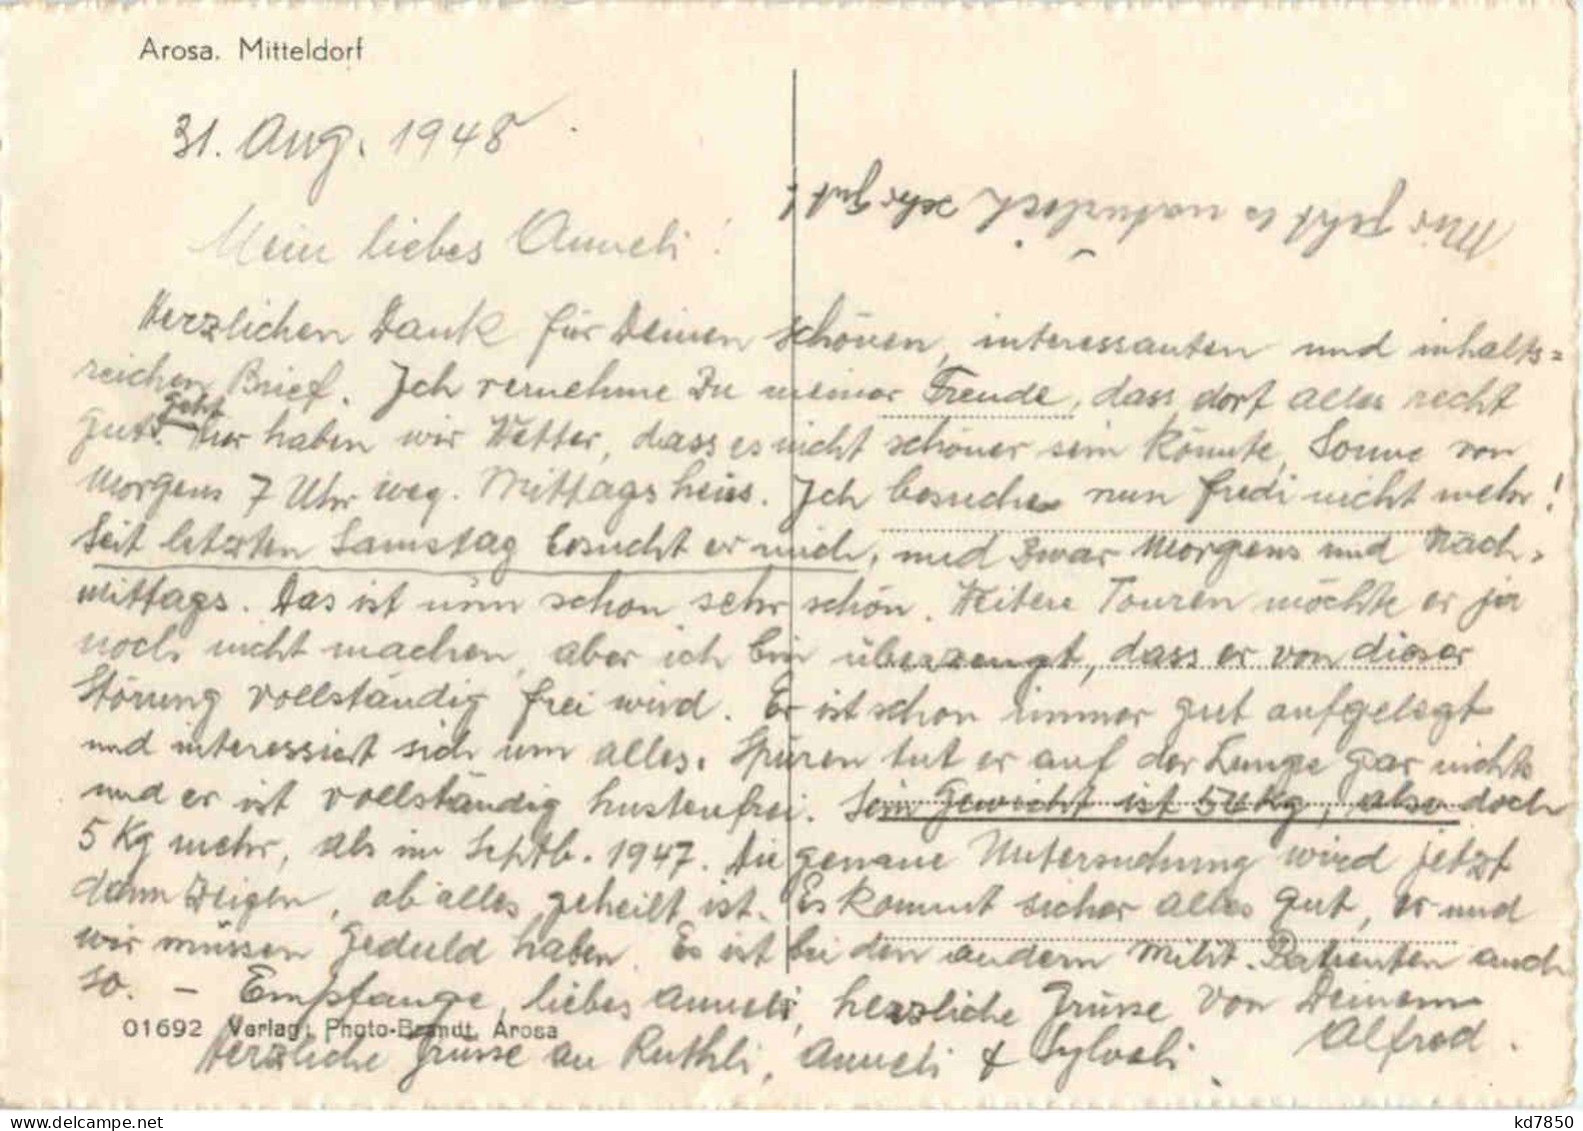 Arosa. Mitteldorf
31. Aug. 1948
Mir geht es natürlich sehr gut!
Mein liebes Anneli!
Herzlichen Dank für Deinen schönen, interessanten und inhalts=
reichen Brief. Ich vernehme zu meiner Freude, dass dort alles recht
geht
gut. Hier haben wir Wetter, dass es nicht schöner sein könnte, Sonne von
Morgens 7 Uhr weg. Mittags heiss. Ich besuche nun Fredi nicht mehr!
Seit letzten Samstag besucht er mich, und zwar Morgens und Nach-
mittags. Das ist nun schon sehr schön. Weitere Touren möchte er ja
noch nicht machen, aber ich bin überzeugt, dass er von dieser
Störung vollständig frei wird. Er ist schon immer gut aufgelegt
und interessiert sich um alles. Spüren tut er auf der Lunge gar nichts
und er ist vollständig hustenfrei. Sein Gewicht ist kg, also doch
5 Kg mehr, als im Septb. 1947. Die genaue Untersuchung wird jetzt
dann zeigen, ob alles geheilt ist. Es kommt sicher alles gut, er und
wir müssen Geduld haben. Es ist bei den andern Milit. Patienten auch
so. - Empfange, liebes Anneli, herzliche Grüsse von Deinem
Alfred.
01692 Verlag: Photo-Brandt, Arosa
Herzliche Grüsse an Ruthli, Anneli & Sylveli.
kd7850